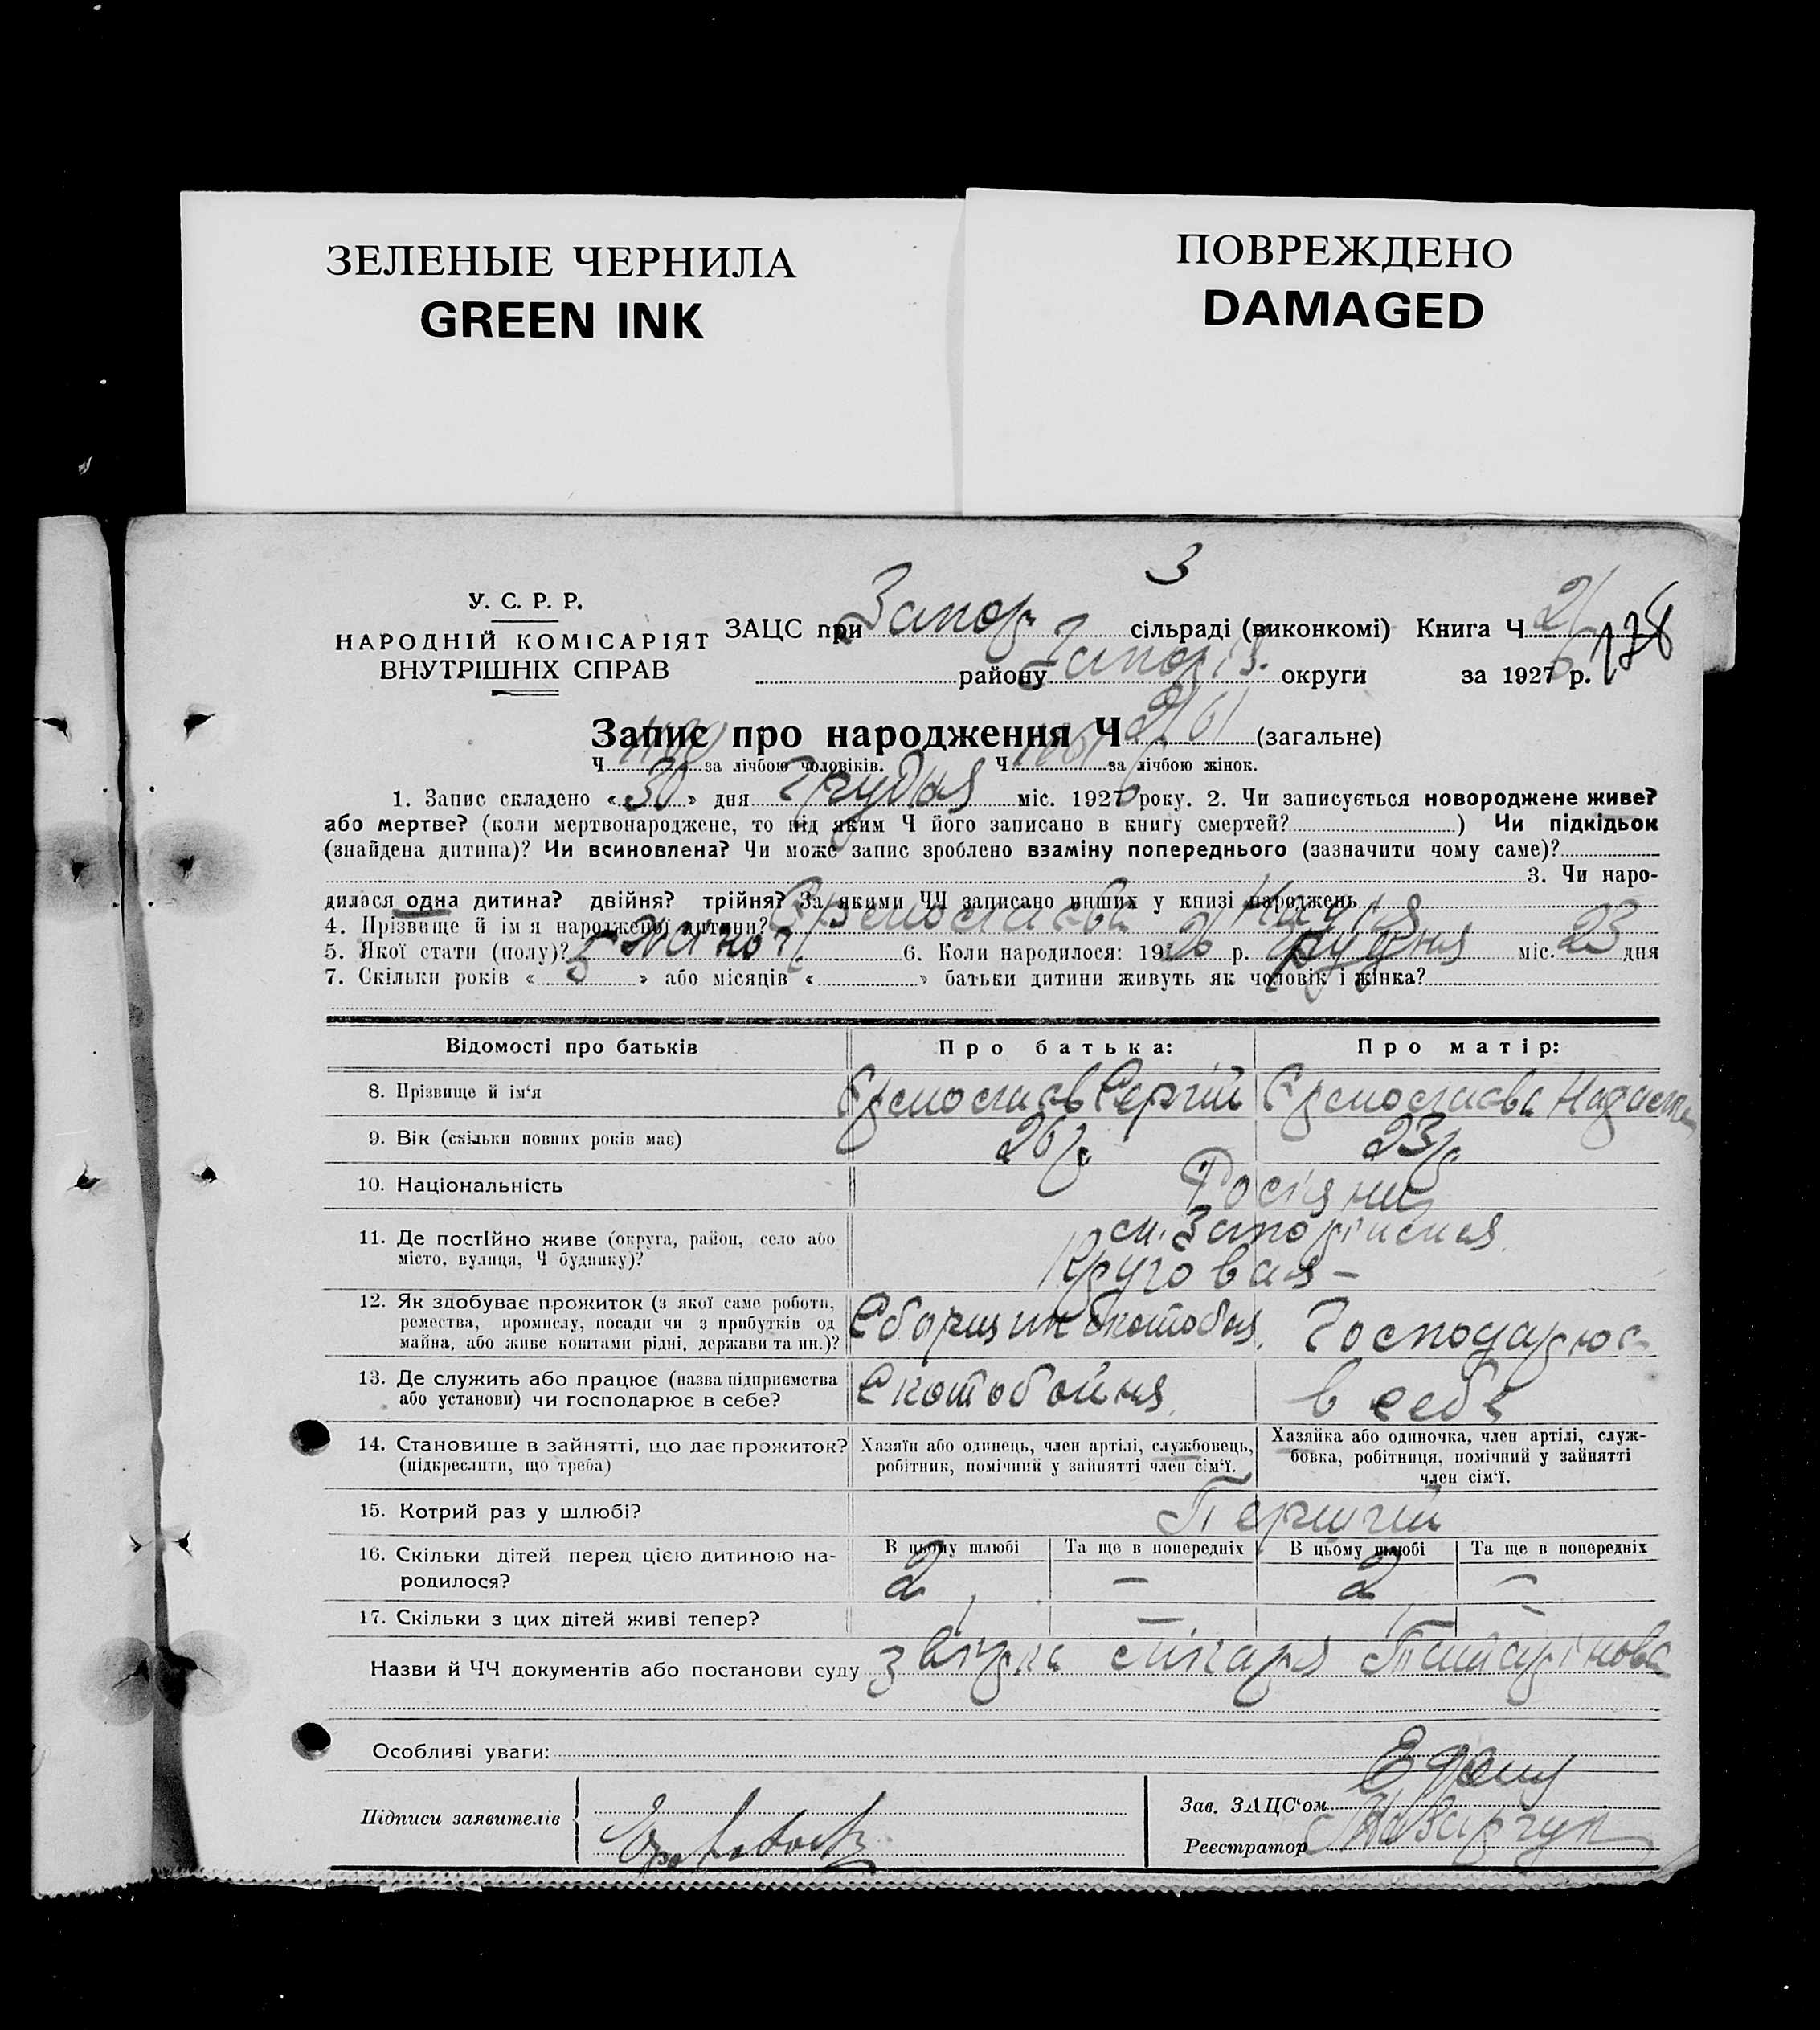 ЗЕЛЕНЫЕ ЧЕРНИЛА
GREEN INK
ПОВРЕЖДЕНО
DAMAGED
3
У. С. Р. Р.
НАРОДНІЙ КОМІСАРІЯТ
ВНУТРІШНІХ СПРАВ
ЗАЦС при Запор сільраді (виконкомі) Книга Ч 2/ 138
району Запоріз. округи за 1926 р.
Запис про народження Ч 2161 (загальне)
Ч за лічбою чоловіків. Ч за лічбою жінок.
1. Запис складено «30» дня Грудня міс. 1926 року. 2. Чи записується новороджене живе?
або мертве? (коли мертвонароджене, то під яким Ч його записано в книгу смертей? ) Чи підкідьок
(знайдена дитина)? Чи всиновлена? Чи може запис зроблено взаміну попереднього (зазначити чому саме)?
3. Чи наро-
дилася одна дитина? двійня? трійня? За якими ЧЧ записано инших у книзі народжень
4. Прізвище й імя народженої дитини?
5. Якої стати (полу)? жіноч 6. Коли народилося: 1926 р. Грудня міс. 23 дня
7. Скільки років «5» або місяців « » батьки дитини живуть як чоловік і жінка?
Відомості про батьків Про батька: Про матір:
8. Прізвище й ім‘я Сергій
9. Вік (скільки повних років має) 26 р. 23 р.
10. Національність Росіяни
11. Де постІйно живе (округа, район, село або
місто, вулиця, Ч будинку)? Круговая –
12. Як здобуває прожиток (з якої саме роботи,
ремества, промислу, посади чи з прибутків од
майна, або живе коштами рідні, держави та ин.)? Господарює
13. Де служить або працює (назва підприємства
або установи) чи господарює в себе? Скотобойня в себе
14. Становище в зайнятті, що дає прожиток?
(підкреслити, що треба)
Хазяїн або одинець, член артілі, службовець,
робітник, помічний у зайнятті член сім‘ї.
Хазяйка або одиночка, член артілі, служ-
бовка, робітниця, помічний у зайнятті
член сім‘ї.
15. Котрий раз у шлюбі? Перший
16. Скільки дітей перед цією дитиною на-
родилося?
В цьому шлюбі Та ще в попередніх В цьому шлюбі Та ще в попередніх
2 – 2 –
17. Скільки з цих дітей живі тепер? 1 – 1 –
Назви й ЧЧ документів або постанови суду
Особливі уваги:
Підписи заявителів
Зав. ЗАЦС‘ом
Реєстратор